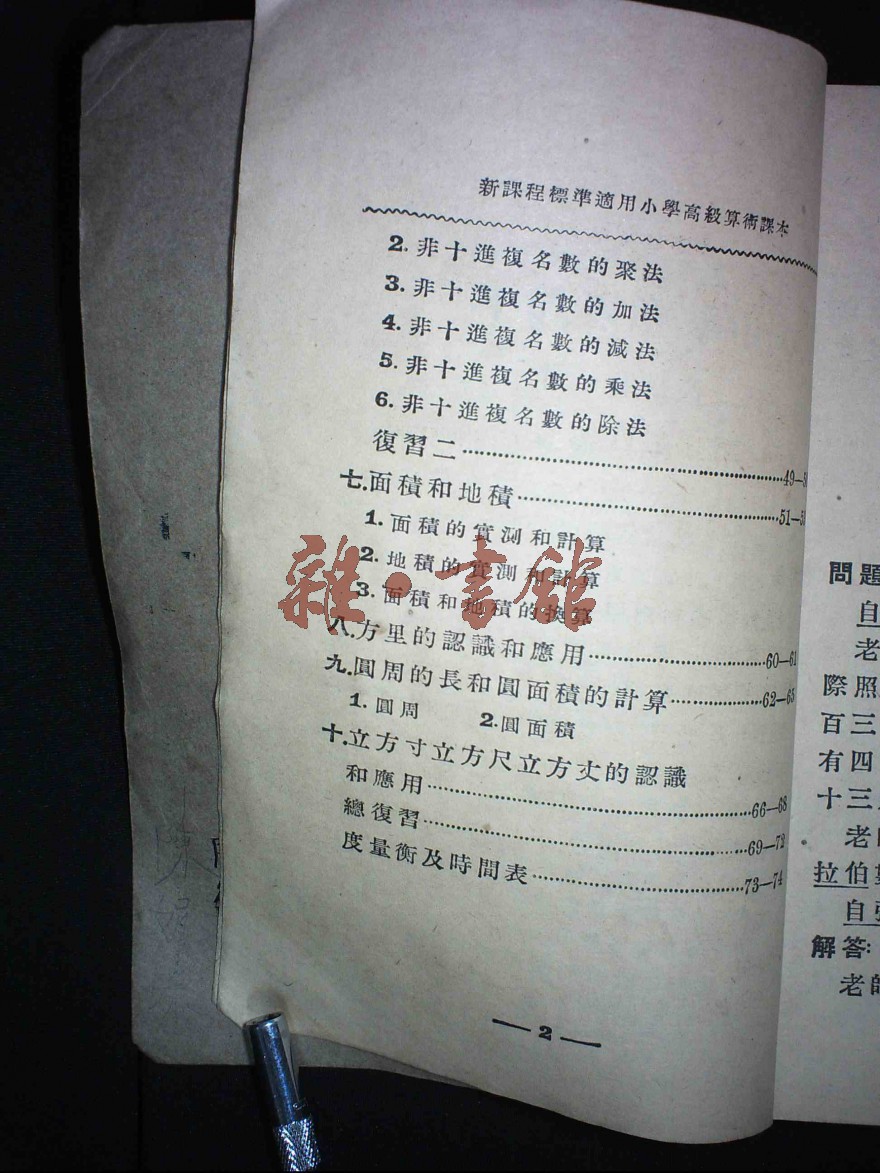 新課程標準適用小學高級算術課本
2. 非十進複名數的聚法
3. 非十進複名數的加法
4. 非十進複名數的減法
5. 非十進複名數的乘法
6. 非十進複名數的除法
復習二……49—5
七.面積和地積……51—5
1. 面積的實測和計算
2. 地積的實測和計算
3. 面積和地積的換算
八.方里的認識和應用……60—61
九.圓周的長和圓面積的計算……62—65
1. 圓周 2.圓面積
十.立方寸立方尺立方丈的認識
和應用……66—68
總復習……69—72
度量衡及時間表……73—74
— 2 —
雜·書館
問題
自
老
際照
百三
有四
十三
老
拉伯
自張
解答:
老師